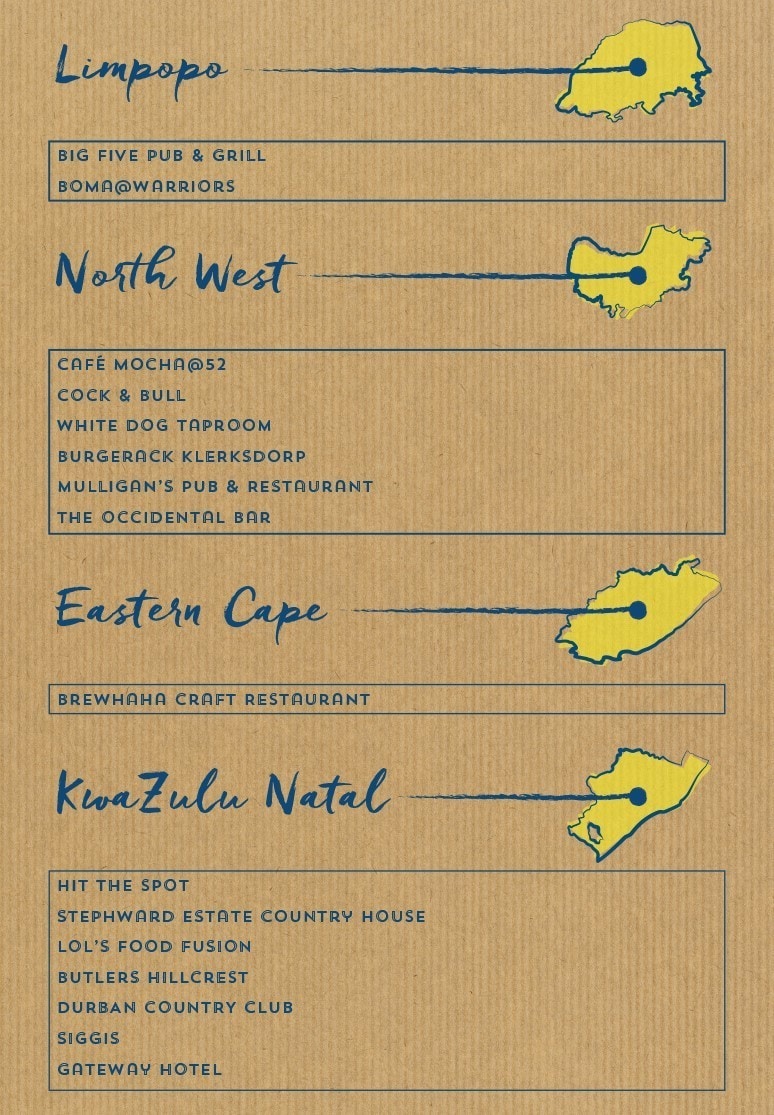 Limpopo
BIG FIVE PUB & GRILL
BOMA@WARRIORS
North West
CAFÉ MOCHA@52
COCK & BULL
WHITE DOG TAPROOM
BURGERACK KLERKSDORP
MULLIGAN'S PUB & RESTAURANT
THE OCCIDENTAL BAR
Eastern Cape
BREWHAHA CRAFT RESTAURANT
KwaZulu Natal
HIT THE SPOT
STEPHWARD ESTATE COUNTRY HOUSE
LOL'S FOOD FUSION
BUTLERS HILLCREST
DURBAN COUNTRY CLUB
SIGGIS
GATEWAY HOTEL